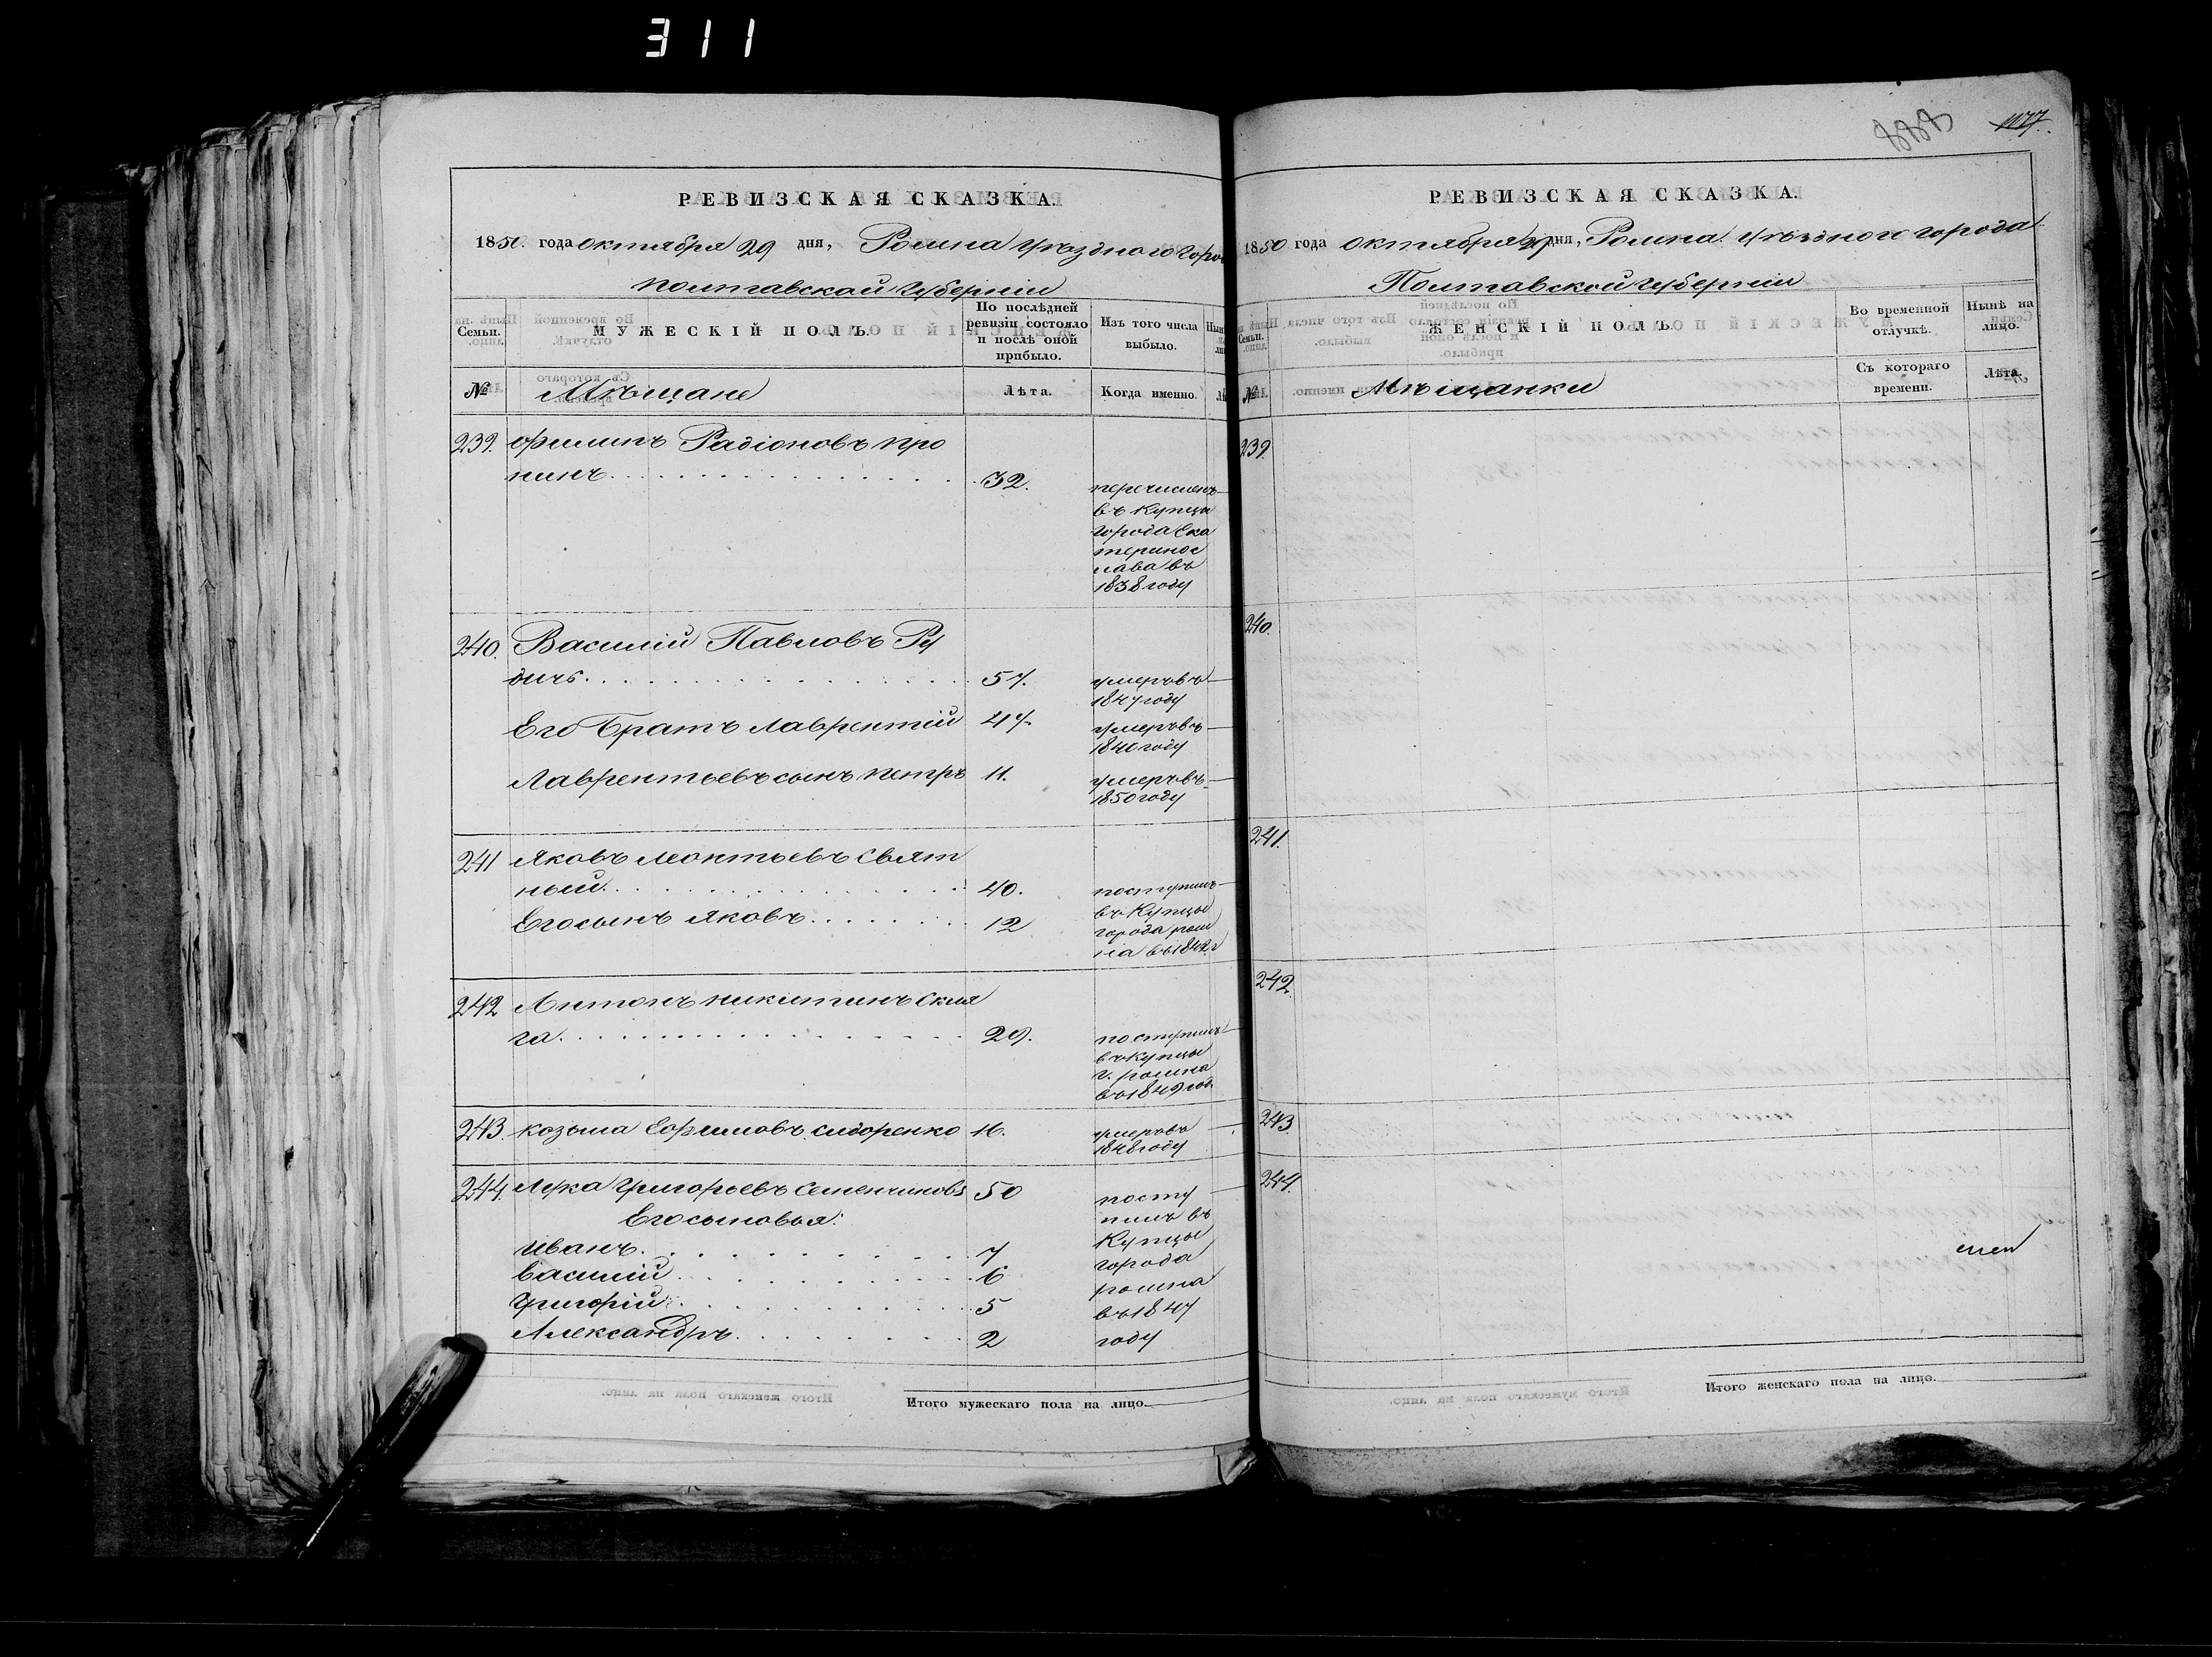 311
РЕВИЗСКАЯ СКАЗКА.
1850. года октября 29 дня, Ромна уѣзднаго горо
полтавской губерніи
Семьи.
МУЖЕСКІЙ ПОЛЪ.
По послѣдней
ревизіи состояло
и послѣ оной
прибыло.
Изъ того числа
выбыло.
№
Мѣщане
Лѣта.
Когда именно.
239. Филипъ Радіоновъ про
нинъ 32. перечисленъ
въ купцы
города Ека
теринос
лава въ
1838 году
240. Василій Павловъ Ру
дичь 57. умеръ въ
1847 году
Его братъ Лаврентій 47. умеръ въ
1840 году
Лаврентьевъ сынъ петръ 11. умеръ въ
1850 году
241 Яковъ Леонтьевъ Свят
ный 40. поступилъ
Его сынъ Яковъ 12 въ купцы
города ром
на въ 1842 г
242 Антонъ никитинъ Скля
га 29. поступилъ
въ купцы
г. ромна
въ 1849 год
243. козьма Ефимовъ сидоренко 16. умеръ въ
1848 году
244. Лука Григорьевъ Семенчиновъ 50 посту
Его сыновья: пилъ въ
Иванъ 7 купцы
Василій 6 города
Григорій 5 ромна
Александръ 2 въ 1847
году
Итого мужескаго пола на лицо.
1177.
РЕВИЗСКАЯ СКАЗКА.
1850 года октября 29 дня, Ромна уѣзднаго города
Полтавской губерніи
Семьи.
ЖЕНСКІЙ ПОЛЪ.
Во временной
отлучкѣ.
Нынѣ на
лицо.
№
Мѣщанки
Съ котораго
времени.
Лѣта.
239.
240.
241.
242.
243.
244.
Итого женскаго пола на лице.